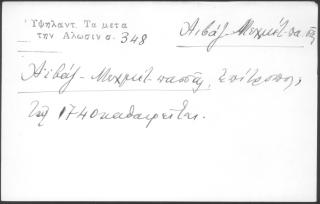 Ὑψηλαντ. Τα μετα
την Αλωσιν σ. 348
Ἀϊβάζ-Μεχμέτ-πασᾶς
Ἀϊβάζ-Μεχμέτ-πασᾶς, Ἐπίτροπος,
1740 καθαιρεῖται.